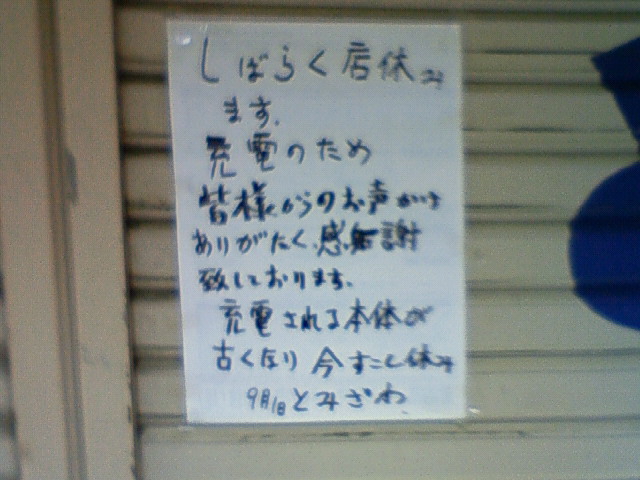 しばらく店休み
ます.
充電のため
皆様からのお声がけ
ありがたく感謝
致しております.
充電される本体が
古くなり今すこし休み
9月1日とみざわ